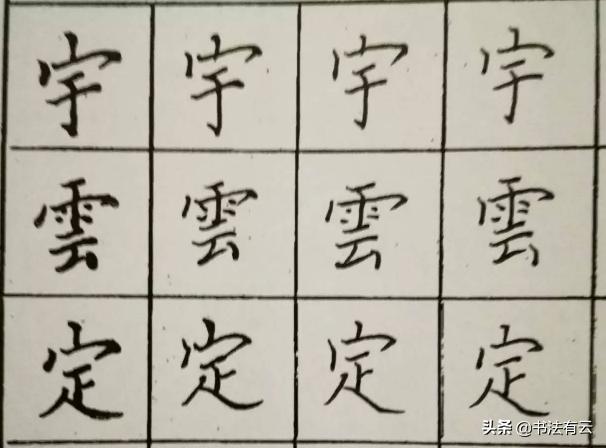 宇 宇 宇 宇
雲 雲 雲 雲
定 定 定 定
头条 @书法有云